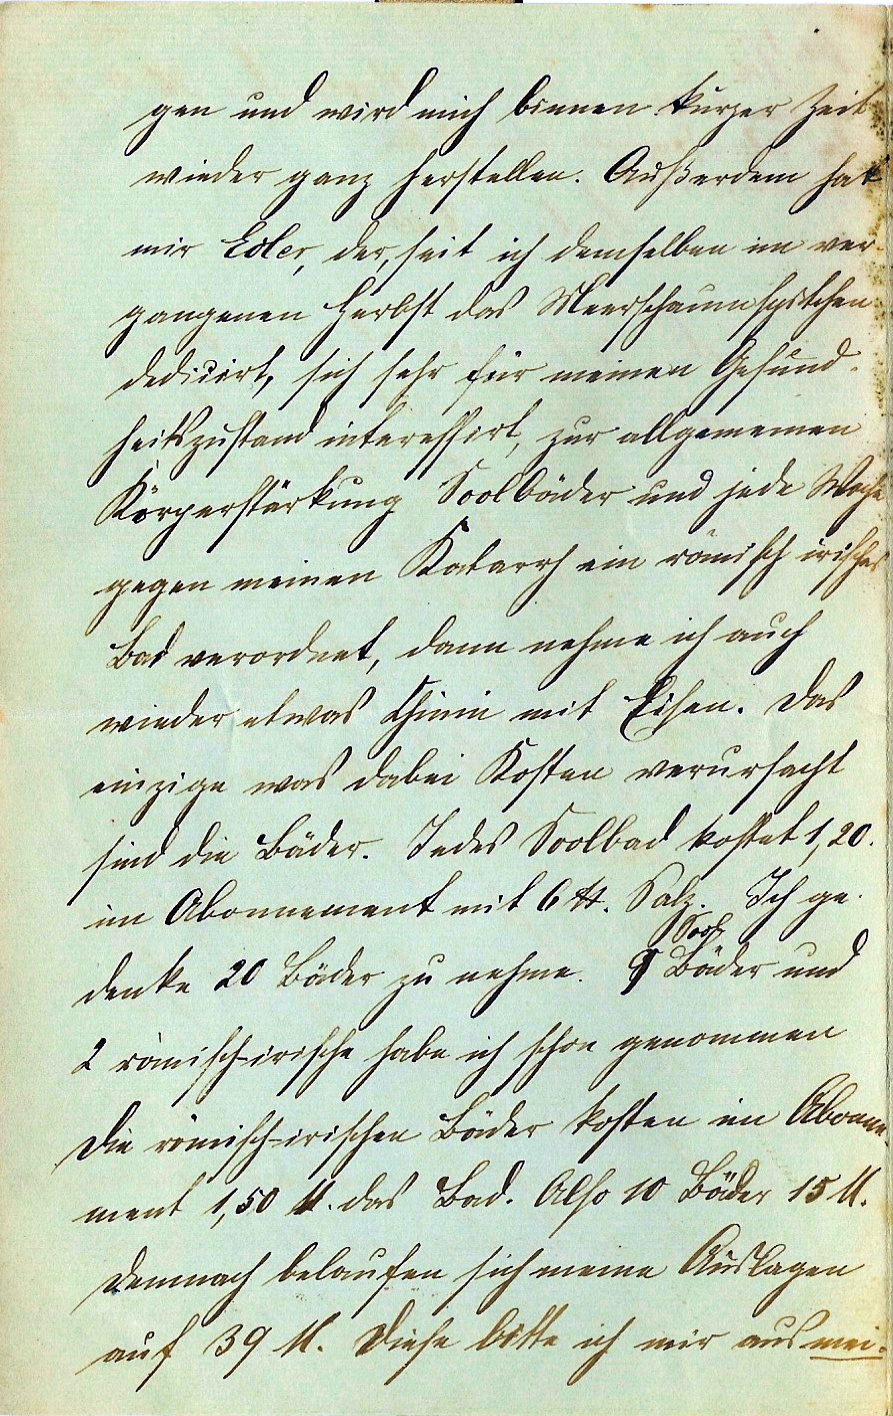 gen und wird mich binnen kurzer Zeit
wieder ganz herstellen. Außerdem hat
mir Edler, der, seit ich demselben im ver-
gangenen Herbst das Meerschaumspitzchen
dedicirt, sich sehr für meinen Gesund-
heitszustand interessirt, zur allgemeinen
Körperstärkung Soolbäder und jede Woche
gegen meinen Katarrh ein römisch irisches
Bad verordnet, dann nehme ich auch
wieder etwas Chinin mit Eisen. Das
einzige was dabei Kosten verursacht
sind die Bäder. Jedes Soolbad kostet 1,20.
im Abonnement mit 6 ℔. Salz. Ich ge-
denke 20 Bäder zu nehme. Sool
Bäder und
2 römisch-irische habe ich schon genommen
Die römisch-irischen Bäder kosten im Abonne-
ment 1,50 M. das Bad. Also 10 Bäder 15 M.
Demnach belaufen sich meine Auslagen
auf 39 M. Diese bitte ich mir aus mei-